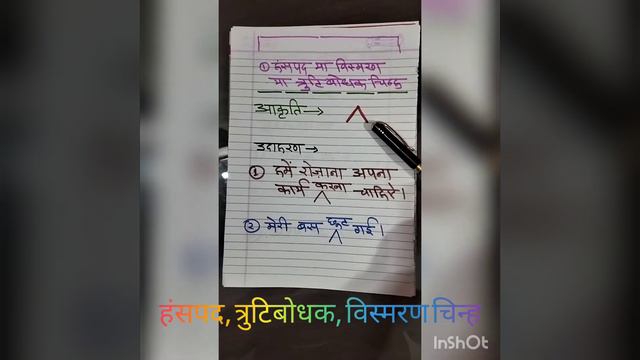 ① हंसपद या विस्मरण
या त्रुटिबोधक चिन्ह
आकृति → ^
उदाहरण →
① हमें रोजाना अपना
कार्य करना चाहिए।
^
② मेरी बस छूट गई।
^
हंसपद, त्रुटिबोधक, विस्मरण चिन्ह
InShOt